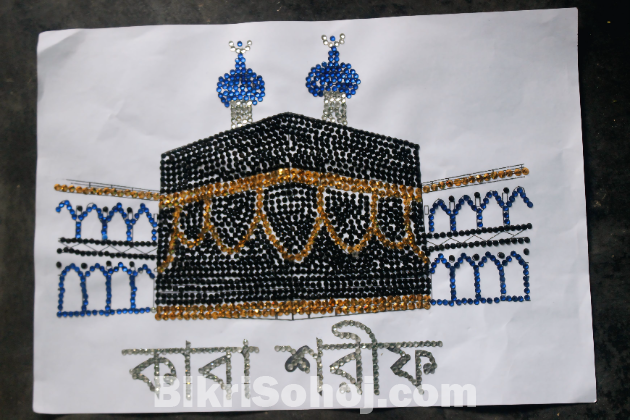 কাবা শরীফ
BikriSohoj.com